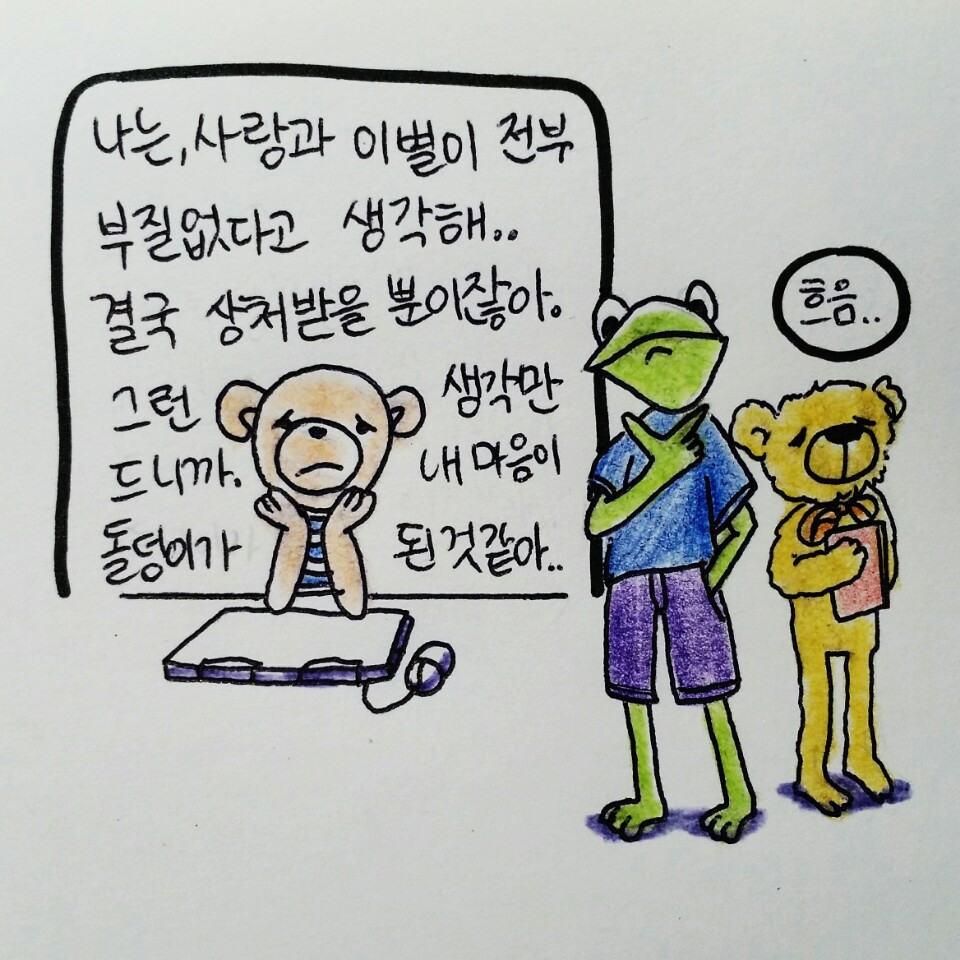 나는, 사랑과 이별이 전부
부질없다고 생각해..
결국 상처받을 뿐이잖아.
그런 생각만
드니까. 내 마음이
돌덩이가 된것같아..
흐음..